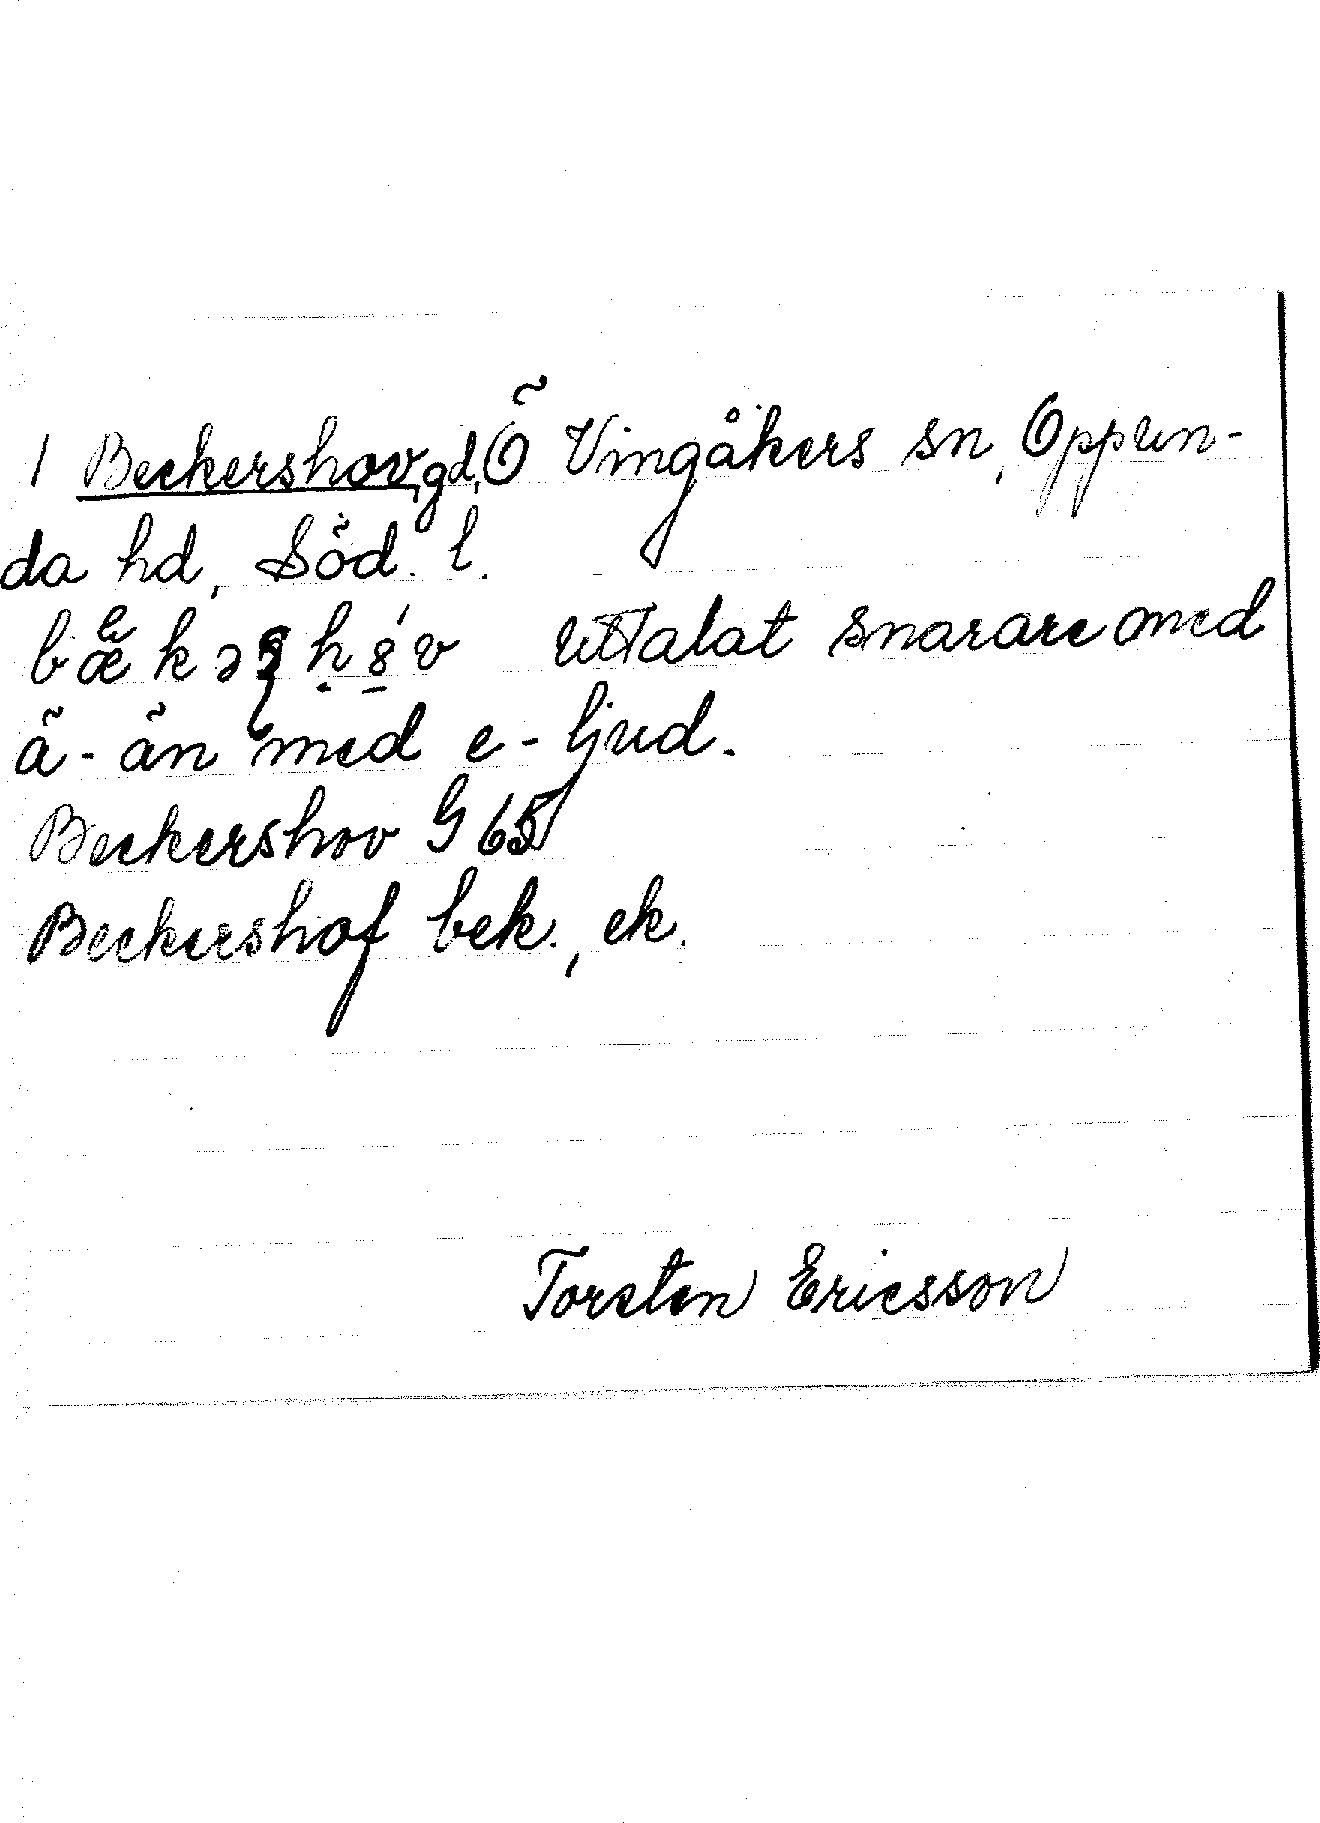 1 Beckershov, gd, Ö Vingåkers sn, Oppun-
da hd, Söd. l.
Uttalat snarare med
ä- än med e-ljud.
Beckershov G 65
Beckershof bek., ek.
Torsten Ericsson